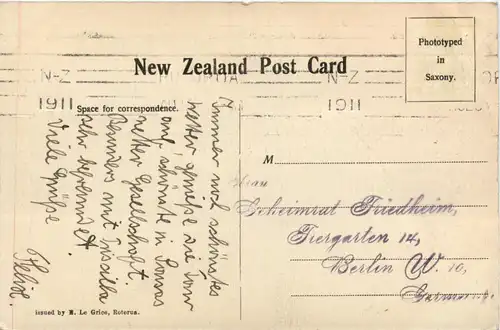 New Zealand Post Card
Phototyped
in
Saxony.
N-Z
1911
N-Z
1911
Space for correspondence.
Immer noch schönstes
Wetter, genieße die Tour
auf schönste in
netter Gesellschaft.
mit
sehr befreundet.
Viele Grüße
M
Frau
Geheimrat Friedheim,
Tiergarten 14,
Berlin W. 10,
Germany
issued by R. Le Grice, Rotorua.